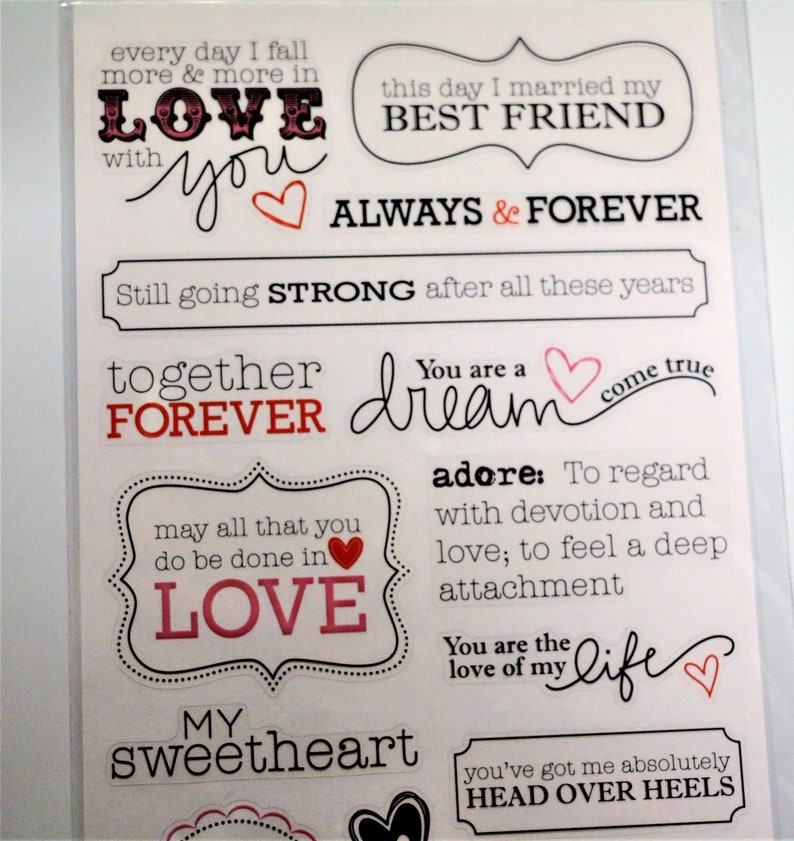 every day I fall
more & more in
LOVE
with you
this day I married my
BEST FRIEND
ALWAYS & FOREVER
Still going STRONG after all these years
together
FOREVER
You are a
dream come true
may all that you
do be done in
LOVE
adore: To regard
with devotion and
love; to feel a deep
attachment
You are the
love of my life
MY
sweetheart
you've got me absolutely
HEAD OVER HEELS